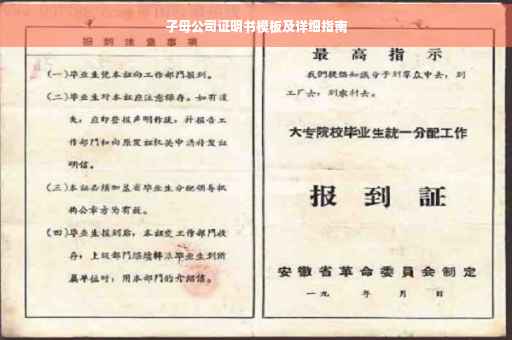 子母公司证明书模板及详细指南
报到注意事项
(一)毕业生凭本证向工作部门报到。
(二)毕业生对本证应注意保存。如有遗
失,应即登报声明作废,并报告工
作部门和向原发证机关申请补发证
明信。
(三)本证必须加盖省毕业生分配领导机
构公章方为有效。
(四)毕业生报到后,本证交工作部门收
存;上级部门继续转派毕业生到所
属单位时,用本部门的介绍信。
最高指示
我们提倡知识分子到群众中去,到
工厂去,到农村去。
大专院校毕业生统一分配工作
报到证
安徽省革命委员会制定
一九 年 月 日